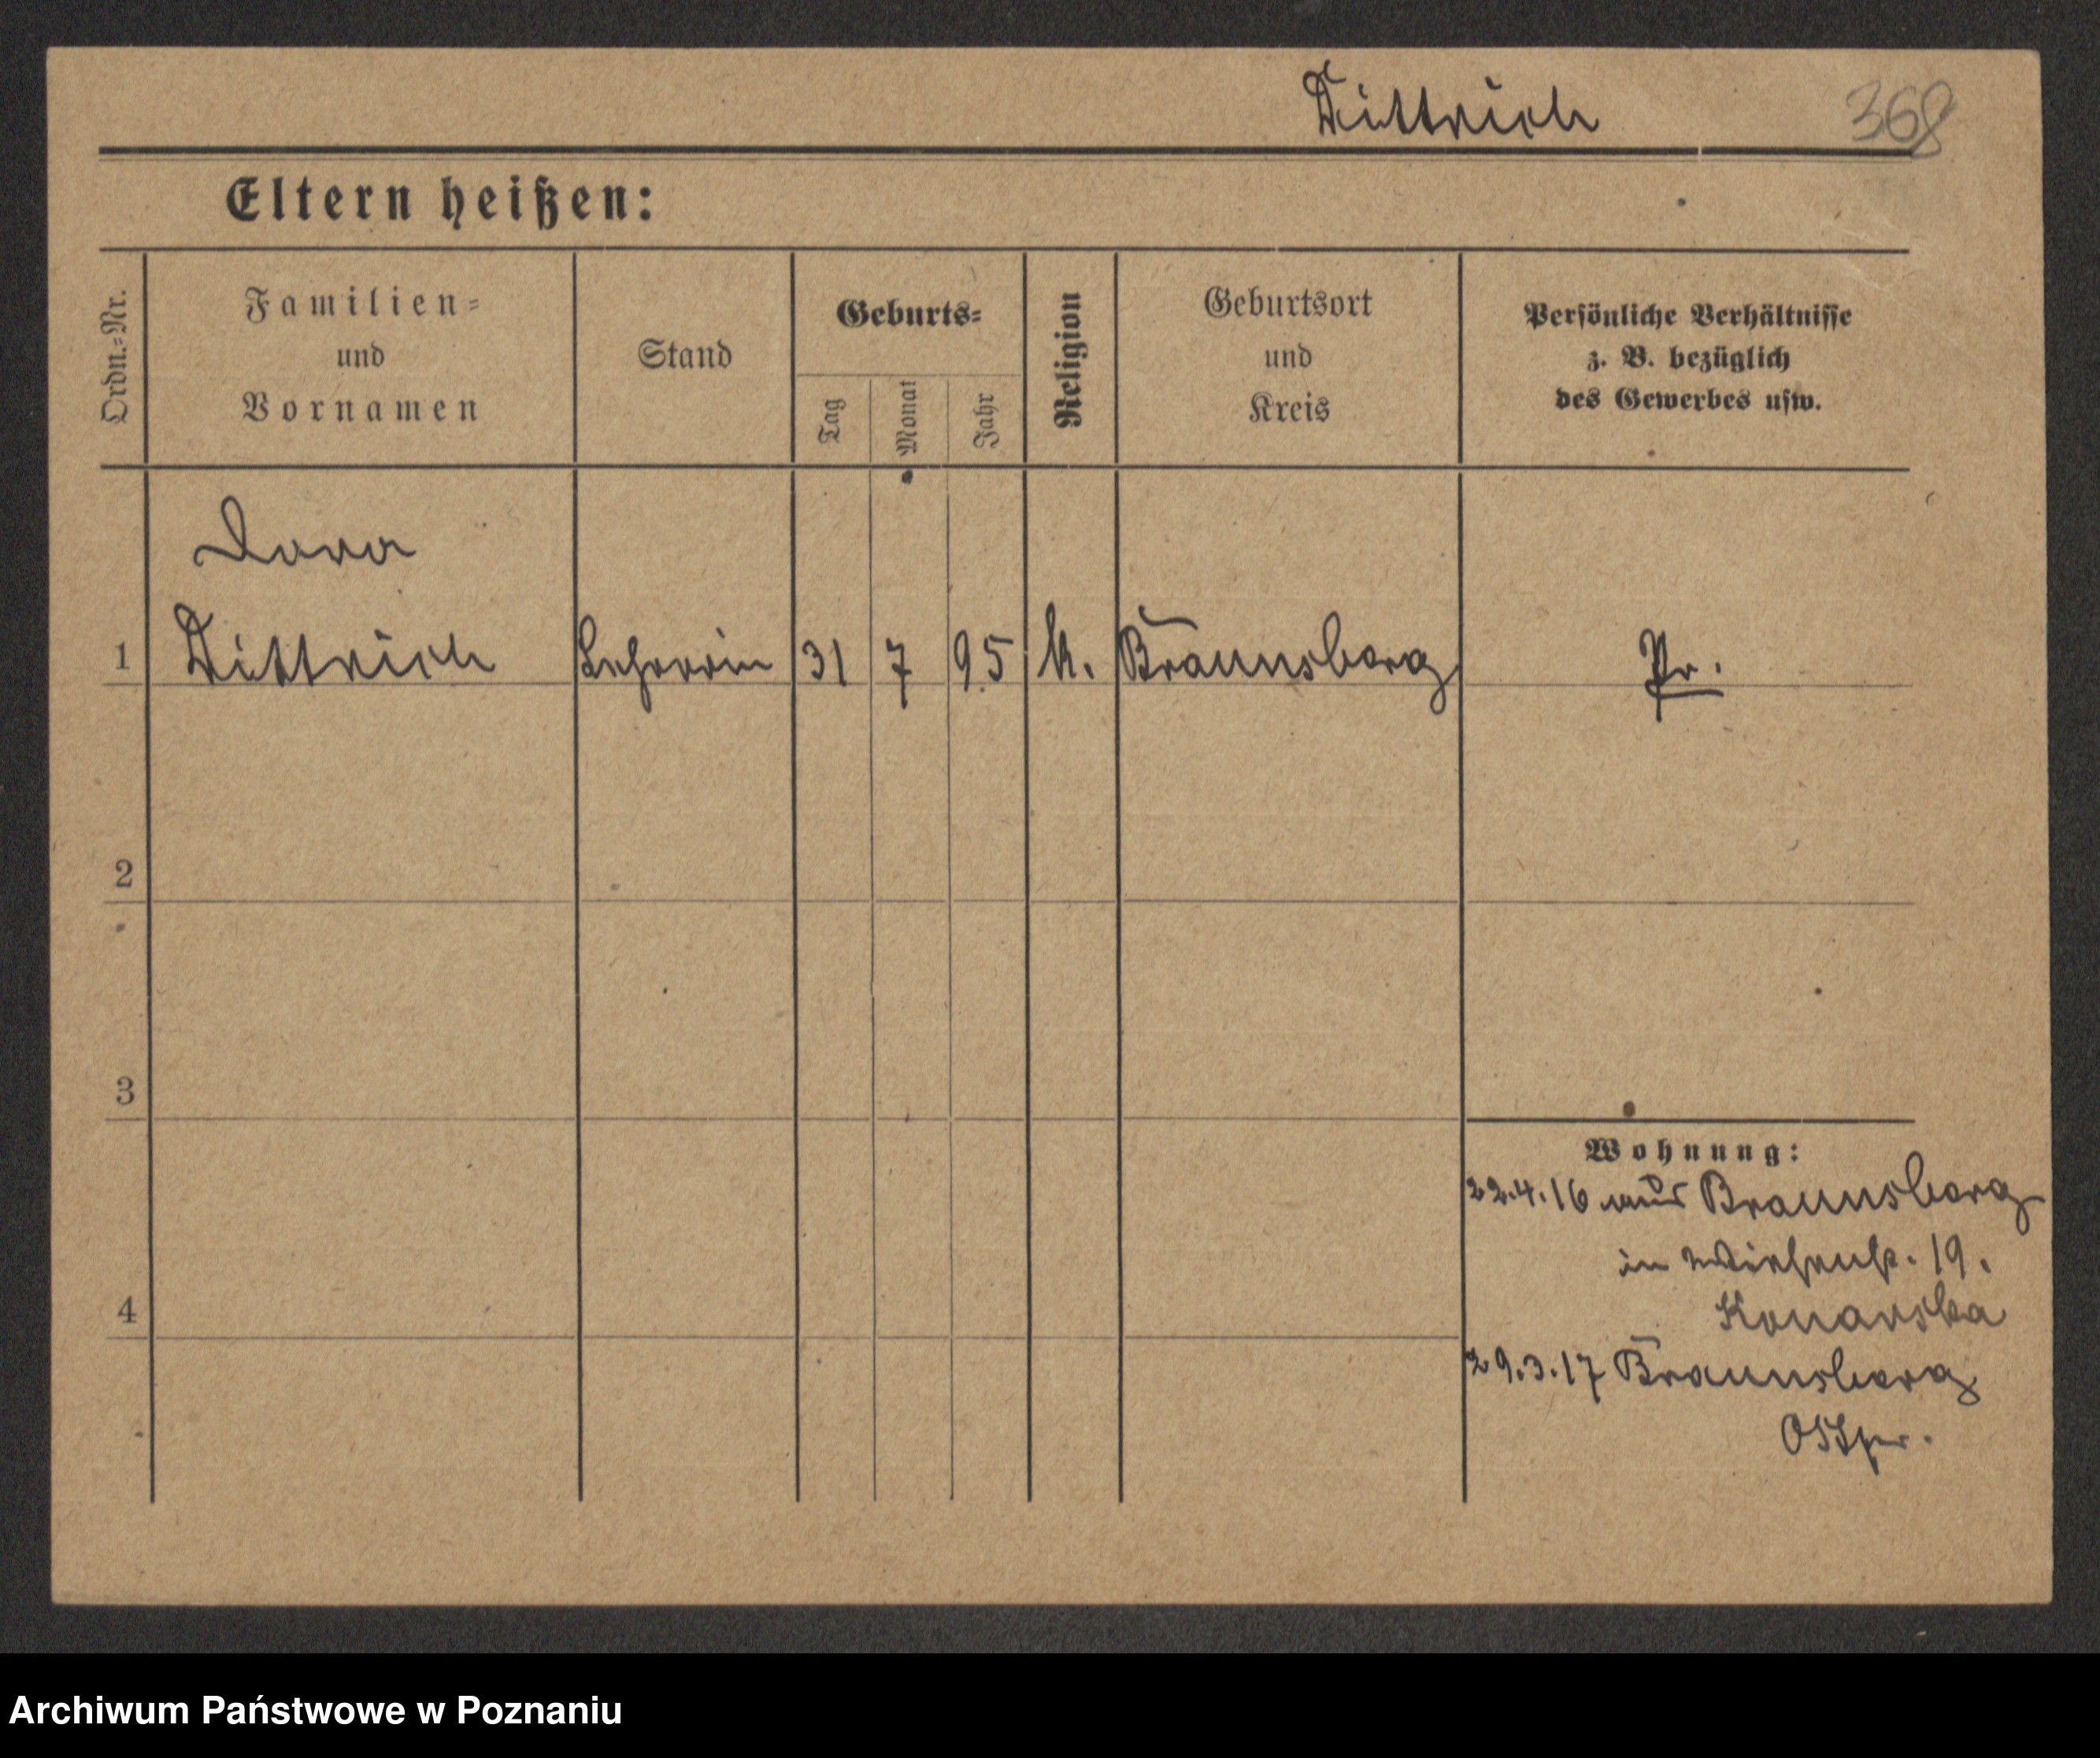 Dittrich 368
Eltern heißen:
Ordn.-Nr.
Familien-
und
Vornamen
Stand
Geburts-
Tag
Monat
Jahr
Religion
Geburtsort
und
Kreis
Persönliche Verhältnisse
z. B. bezüglich
des Gewerbes usw.
Dora
1 Dittrich Lehrerin 31 7 95 k. Braunsberg Pr.
2
3
Wohnung:
22.4.16 aus Braunsberg
in 19.
4 Konarska
29.3.17 Braunsberg
Ostpr.
Archiwum Państwowe w Poznaniu